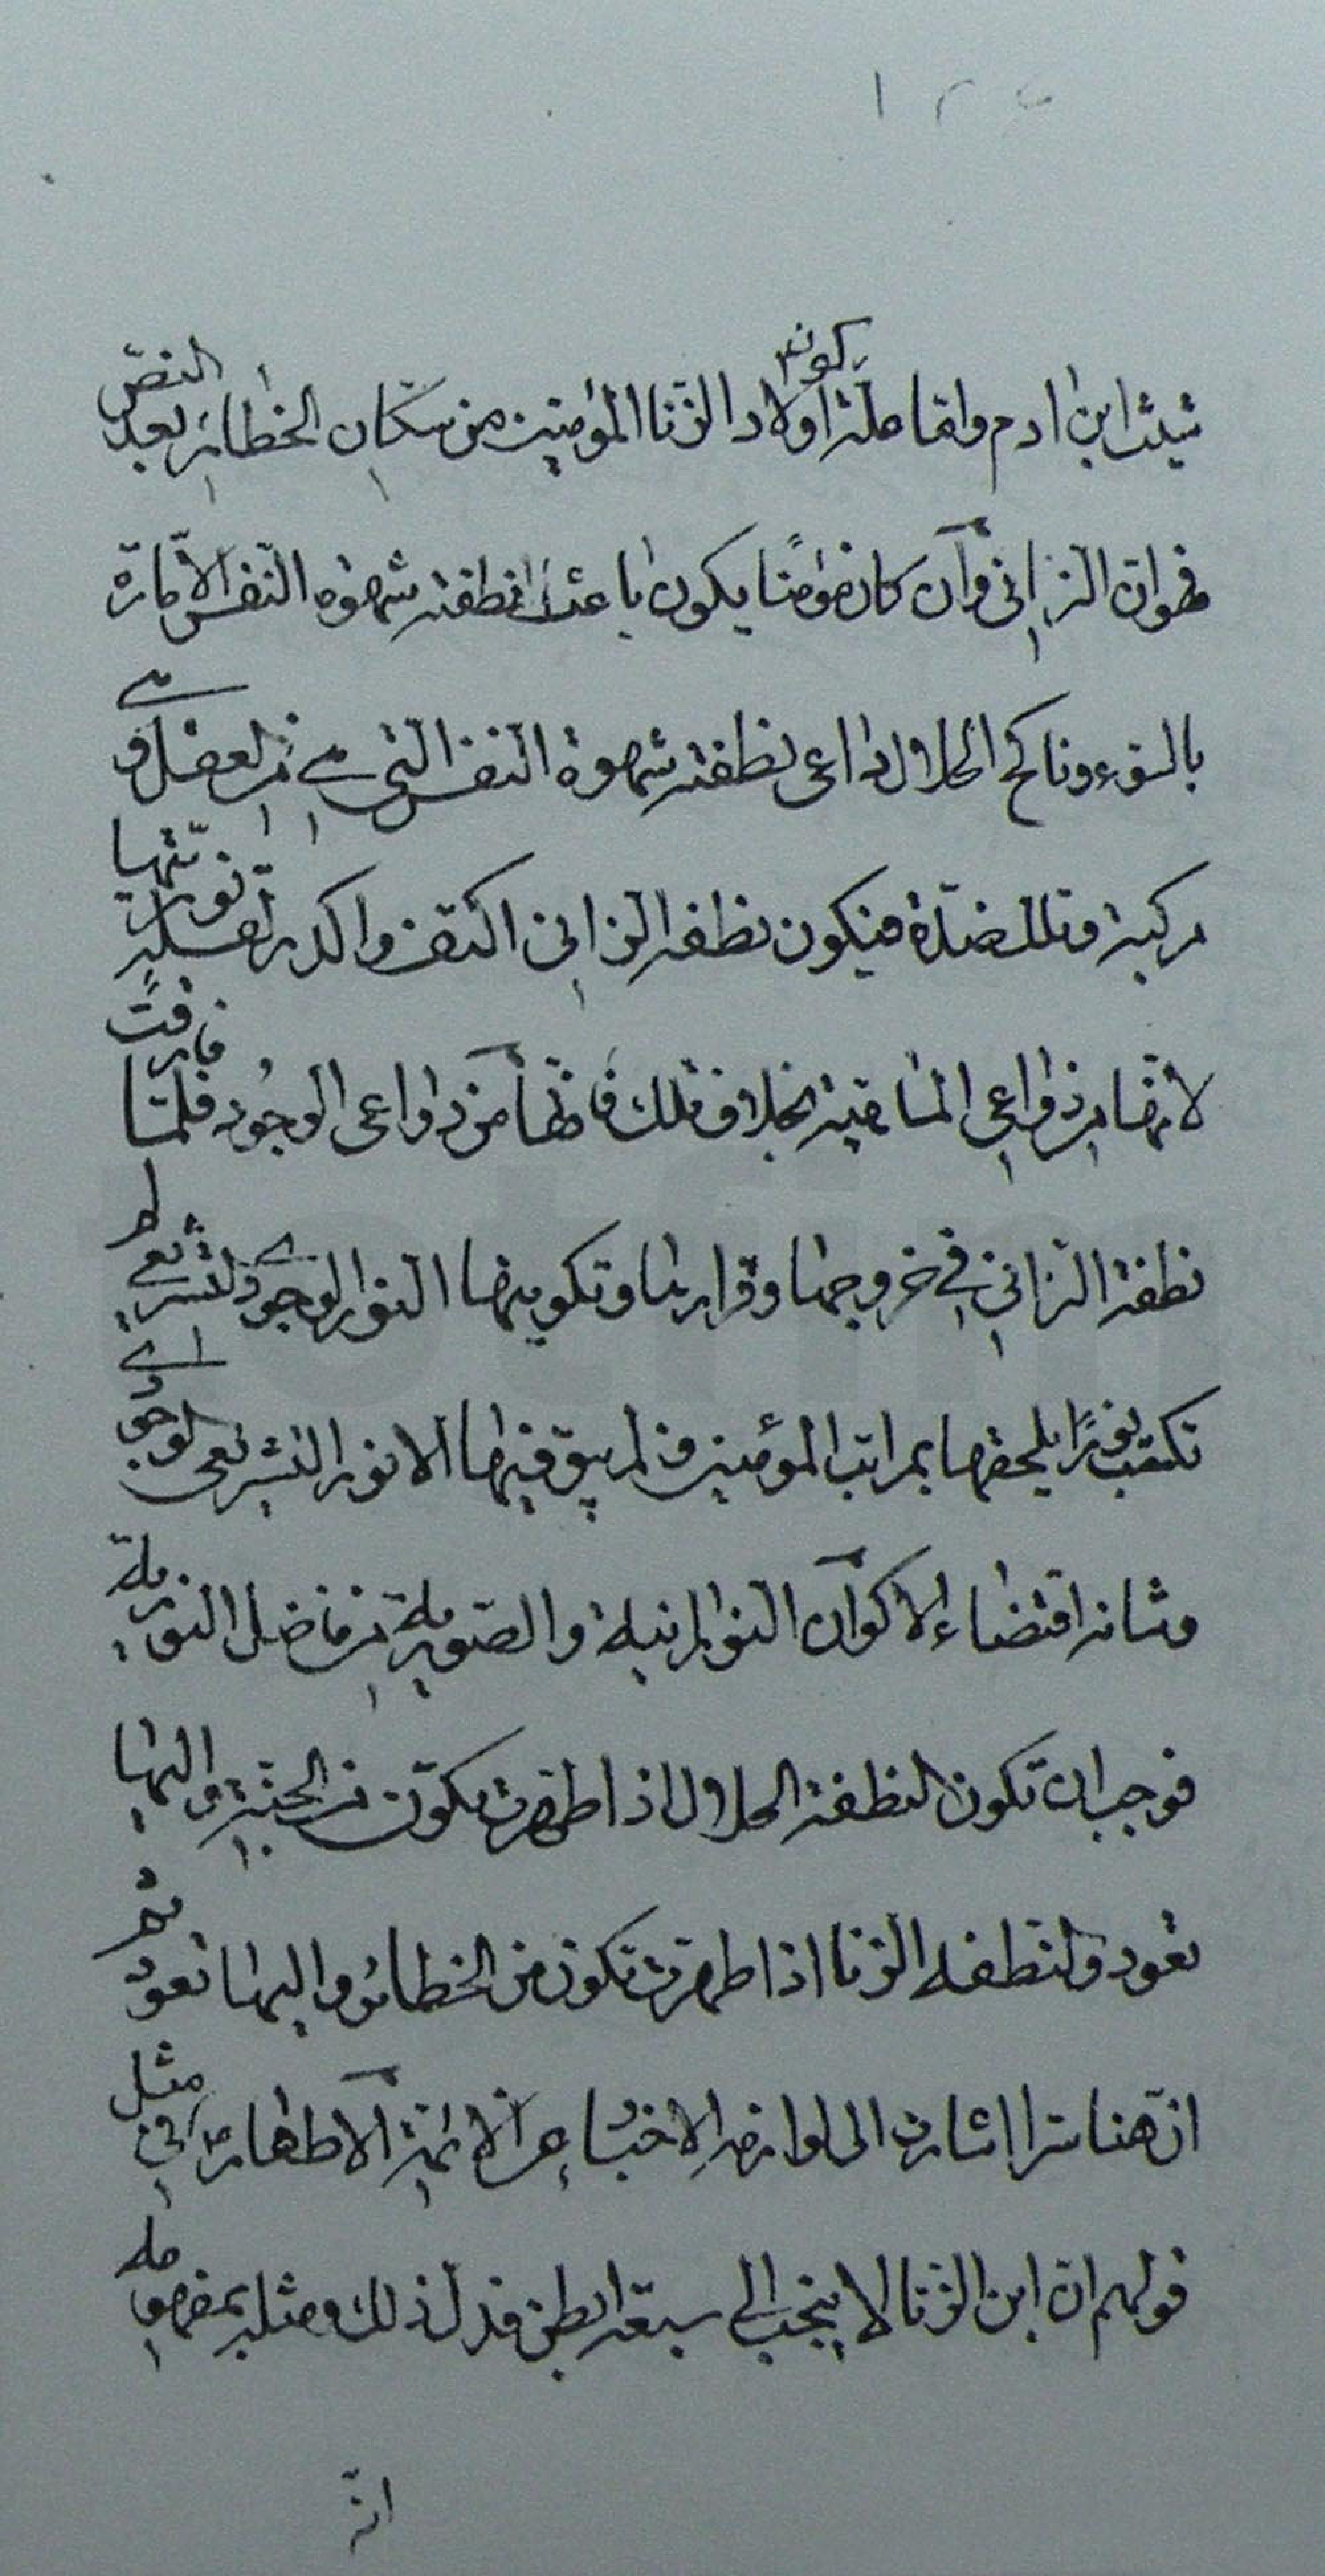 شيث ابن ادم واما علة كون اولاد الزنا المؤمنين من سكان الحظائر بعد النص
فهو ان الزاني وان كان مؤمنا يكون باعث نطفته شهوة النفس الامارة
بالسوء وناكح الحلال داعي نطفته شهوة النفس التي هي من العقل وهي
مركبة وتلك ضدة فيكون نطفة الزاني اكثف واكدر لقلة نوريتها
لانها من دواعي الماهية بخلاف تلك فانها من دواعي الوجود فلما فارقت
نطفة الزاني في خروجها وقرارها وتكوينها النور الوجودي التشريعي لم
تكتسب نورا يلحقها بمراتب المؤمنين ولم يبق فيها الا نور التشريعي الوجودي
وشانه اقتضاء الاكوان النورانية والصورية من فاضل النورية
فوجب ان تكون لنطفة الحلال اذا طهرت تكون من الجنة واليها
تعود ولنطفة الزنا اذا طهرت تكون من الحظائر واليها تعود ثم
ان هنا سرا اشارت الى لوازمه الاخبار عن الائمة الاطهار في مثل
قولهم ان ابن الزنا لا ينجب الى سبعة ابطن فدل ذلك ومثله بمفهومه
انه